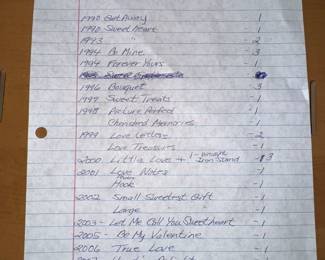 1990 Get Away - 1
1990 Sweet Heart - 1
1993 " - 2
1994 Be Mine - 3
1994 Forever Yours - 1
1996 Bouquet - 3
1997 Sweet Treats - 1
1998 Picture Perfect - 1
Cherished Memories - 1
1999 Love Letters - 2
Love Treasures - 1
2000 Little Love + 1-weight Iron Stand - 3
2001 Love Notes - 1
Hook - 1
2002 Small Sweetest Gift - 1
Large - 1
2003 - Let Me Call You Sweetheart - 1
2005 - Be My Valentine - 1
2006 True Love - 1